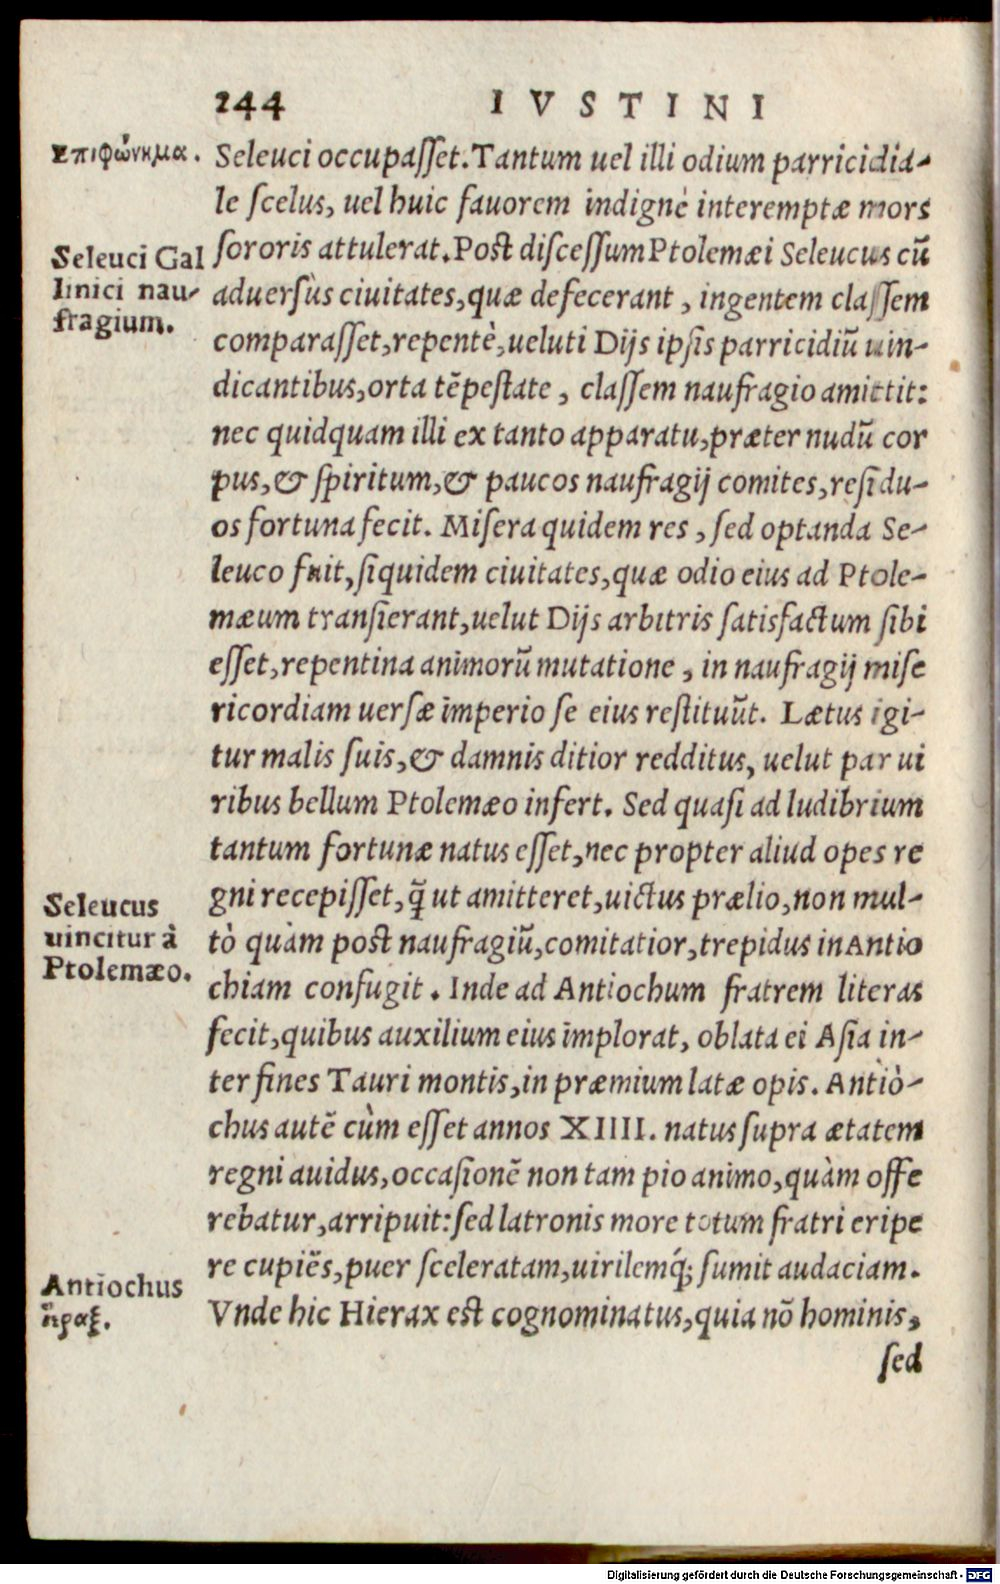 244 IVSTINI
Επιφώνημα.
Seleuci occupaſſet. Tantum uel illi odium parricidia-
le ſcelus, uel huic fauorem indignè interemptæ mors
ſororis attulerat. Poſt diſceſſum Ptolemæi Seleucus cũ
aduerſùs ciuitates, quæ defecerant, ingentem claſſem
comparaſſet, repentè, ueluti Dijs ipſis parricidiũ uin-
dicantibus, orta tẽpeſtate, claſſem naufragio amittit:
nec quidquam illi ex tanto apparatu, præter nudũ cor
pus, & ſpiritum, & paucos naufragij comites, reſidu-
os fortuna fecit. Miſera quidem res, ſed optanda Se-
leuco fuit, ſiquidem ciuitates, quæ odio eius ad Ptole-
mæum tranſierant, uelut Dijs arbitris ſatisfactum ſibi
eſſet, repentina animorũ mutatione, in naufragij miſe
ricordiam uerſæ imperio ſe eius reſtituũt. Lætus igi-
tur malis ſuis, & damnis ditior redditus, uelut par ui
ribus bellum Ptolemæo infert. Sed quaſi ad ludibrium
tantum fortunæ natus eſſet, nec propter aliud opes re
gni recepiſſet, q̃ ut amitteret, uictus prælio, non mul-
tò quàm poſt naufragiũ, comitatior, trepidus in Antio
chiam confugit. Inde ad Antiochum fratrem literas
fecit, quibus auxilium eius implorat, oblata ei Aſia in-
ter fines Tauri montis, in præmium latæ opis. Antiò-
chus autẽ cùm eſſet annos XIIII. natus ſupra ætatem
regni auidus, occaſionẽ non tam pio animo, quàm offe
rebatur, arripuit: ſed latronis more totum fratri eripe
re cupiẽs, puer ſceleratam, uirilemq́; ſumit audaciam.
Vnde hic Hierax eſt cognominatus, quia nõ hominis,
ſed
Seleuci Gal
linici nau-
fragium.
Seleucus
uincitur à
Ptolemæo.
Antiochus
ἵεραξ.
Digitalisierung gefördert durch die Deutsche Forschungsgemeinschaft - DFG